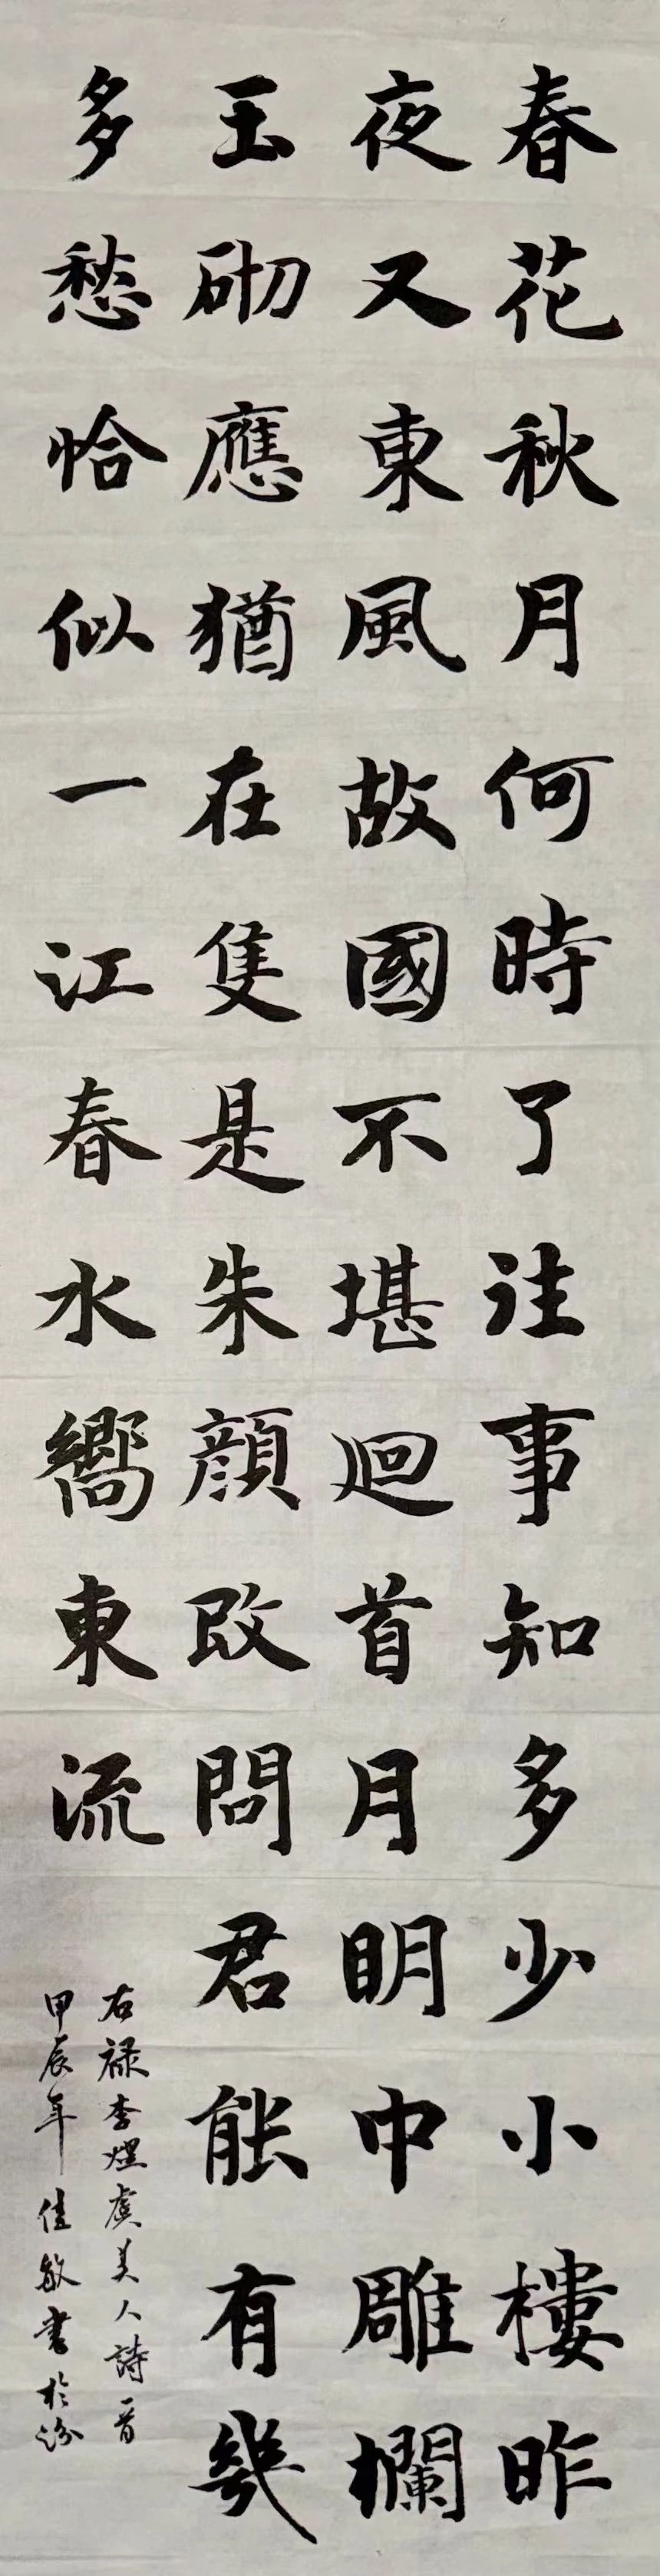 春花秋月何時了往事知多少小樓昨
夜又東風故國不堪迴首月明中雕欄
玉砌應猶在隻是朱顔改問君能有幾
多愁恰似一江春水嚮東流
右祿李煜虞美人詩一首
甲辰年佳敏書於汾